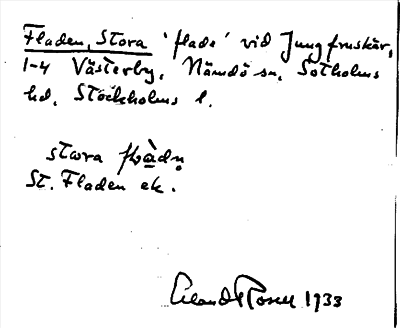 Fladen, Stora 'flade' vid Jungfruskär,
1-4 Västerby, Nämdö sn, Sotholms
hd, Stockholms l.
stora
St. Fladen ek.
Erland Rosell 1933